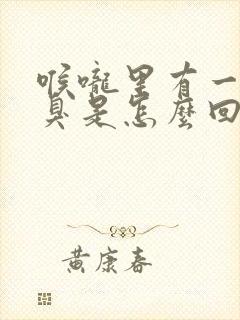 喉嚨里有一
臭是怎麼回
黄康春